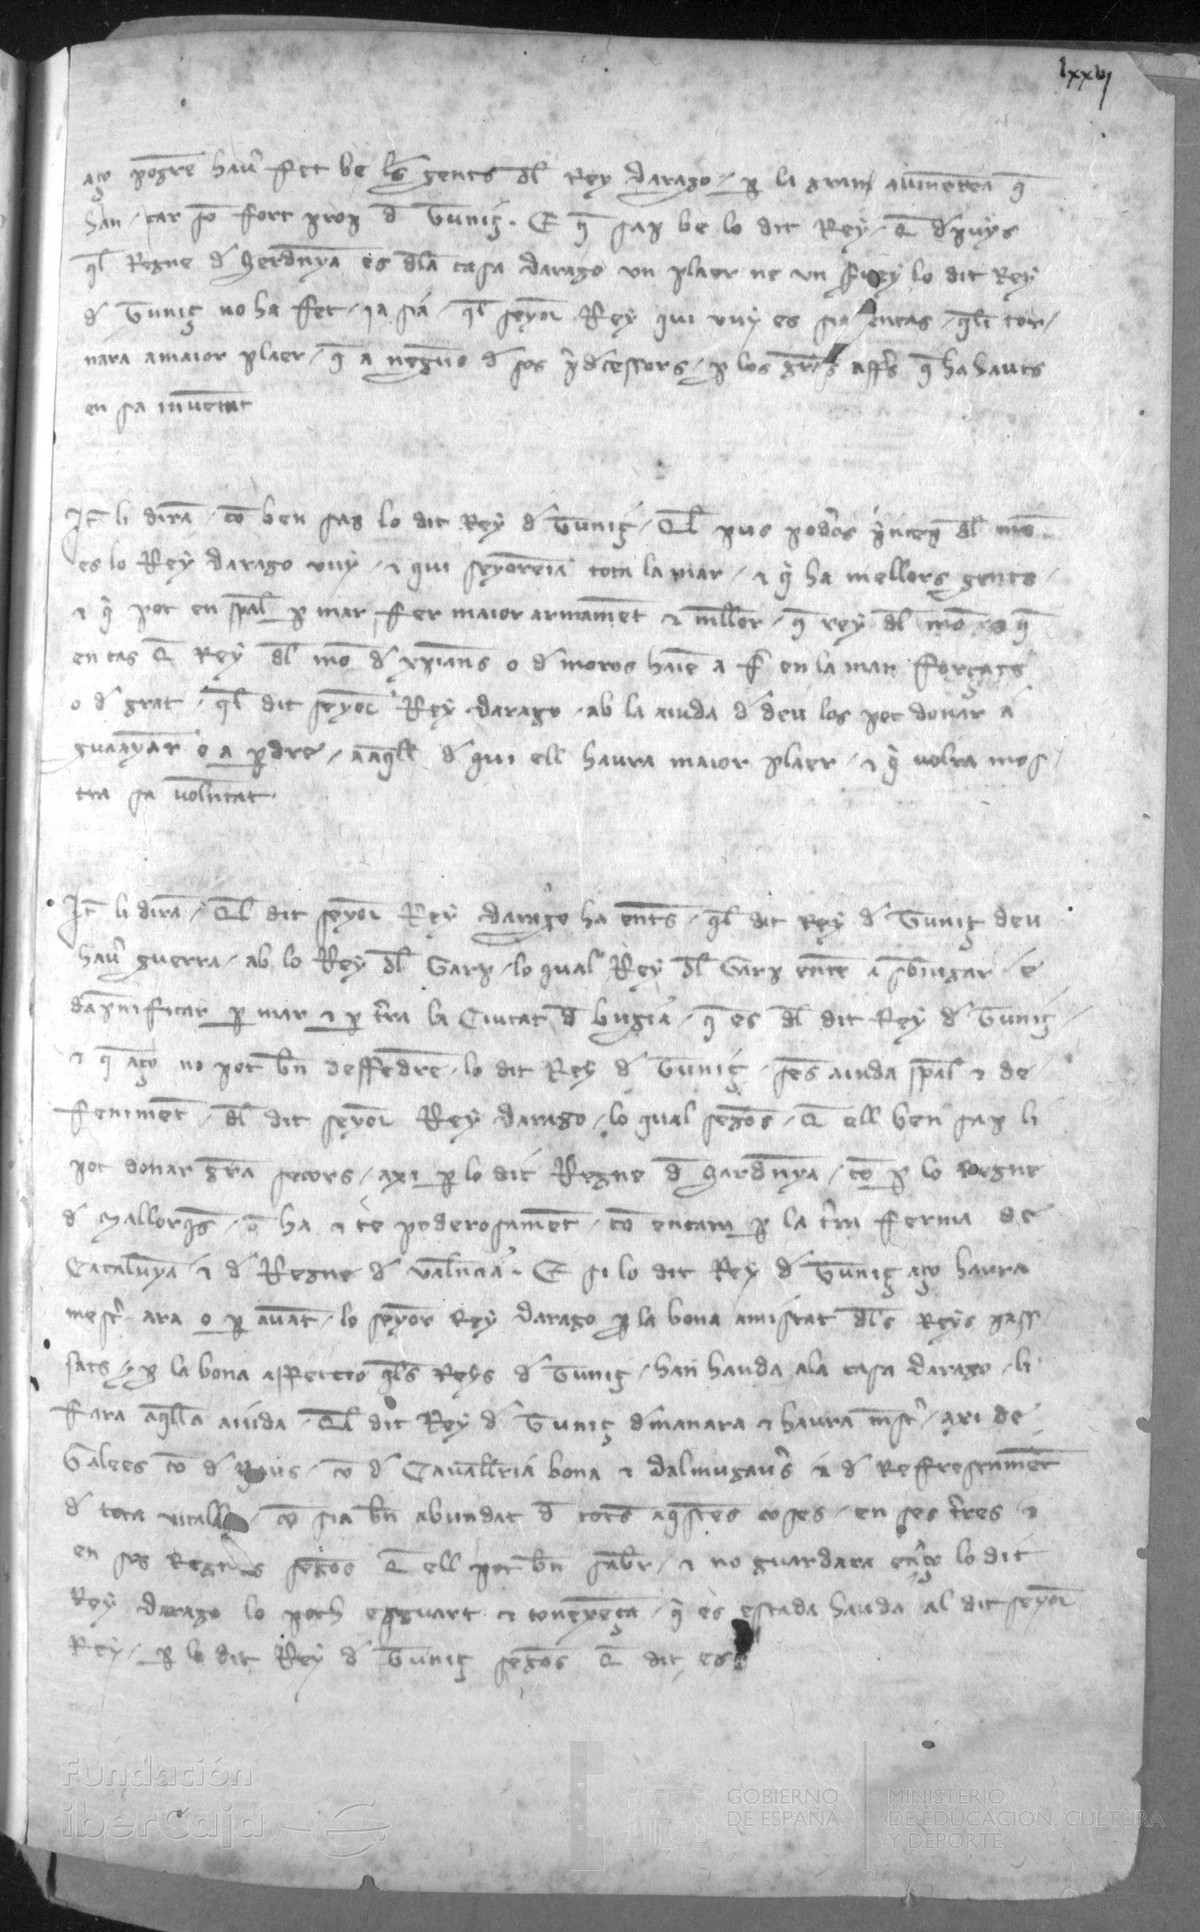 lxxvj
aço pogrē hauᷤ fet be ls̄ gents dl̄ Rey darago / p̱ la gran auinētea q̄
han / car so fort prop d̄ Tuniç · E q̄ sap be lo dit Rey / Q̄ dspuys
ql̄ Regne d' Serdēnya es dla casa darago un plaer ne un seruey lo dit Rey
d' Tuniç no ha fet / ia sia / ql̄ seyor Rey qui vuy es sia encas / qli tor /
nara a maior plaer / q̄ a negū d' sos pdecessors / p̱ los grās affrs q̄ ha hauts
en sa iuuentut
Itē li dirā / cō ben sap lo dit Rey d' Tuniç / Ql̄ pus poderos princep dl̄ mō
es lo Rey darago vuy / & qui seyoreia tota la mar / & q̄ ha mellors gents /
& q̄ pot en spāl p̱ mar fer maior armamēt & mllor / q̄ rey dl̄ mō es q̄
en cas Q̄ Rey dl̄ mō d' xp̄ians o d' moros haie a f en la mar forçats
o d' grat / ql̄ dit seyor Rey darago / ab la aiuda d' deu los pot donar a
guaayar o a p̱dre / a aqll d' qui ell haura maior plaer / & q̄ volra mos /
tra sa volūtat
Itē li dirā / Ql̄ dit seyor Rey darago ha entes / ql̄ dit Rey d' Tuniç deu
hauᷤ guerra / ab lo Rey dl̄ Garp / lo qual Rey dl̄ Garp enten a sbiugar / e
dapnificar p̱ mar & p̱ tr̄ra la Ciutat d̄ bugia / q̄ es dl̄ dit Rey d' Tuniç /
& q̄ aço no pot bn̄ deffedre / lo dit Rey d' Tuniç / sēs aiuda spāl & de /
feniment / dl̄ dit seyor Rey darago / lo qual segōs / Q̄ ell ben sap li
pot donar grā secors / axi p̱ lo dit Regne d̄ Sardēnya / cō p̱ lo regne
d' Mallorqs / q̄ ha & te poderosamēt / cō encara p̱ la tr̄ra ferma de
Catalunya & d' Regne d' valēcia · E si lo dit Rey d' Tuniç aço haura
mestr ara o p̱ auāt / lo seyor Rey darago p̱ la bona amistat dls Reys pass
sats / & p̱ la bona affeccio qls Reys d' Tuniç / han hauda a la casa darago / li
fara aqlla aiuda / Ql̄ dit Rey d' Tuniç dmanara & haura mstr / axi de
Galees cō d' Naus / cō d' Cauallria bona & dalmugauᷤs & d' Reffrescamēt
d' tota vitalla / cō sia bn̄ abundat d̄ tots aqstes coses / en ses tr̄res &
en sos Regnes segōs Q̄ ell pot bn̄ saber / & no guardara en ço lo dit
Rey darago lo poch esguart & conexēça / q̄ es estada hauda al dit seyor
Rey / p̱ lo dit Rey d' Tuniç segōs Q̄ dit es
Fundación
iberCaja
GOBIERNO
DE ESPAÑA
MINISTERIO
DE EDUCACIÓN, CULTURA
Y DEPORTE